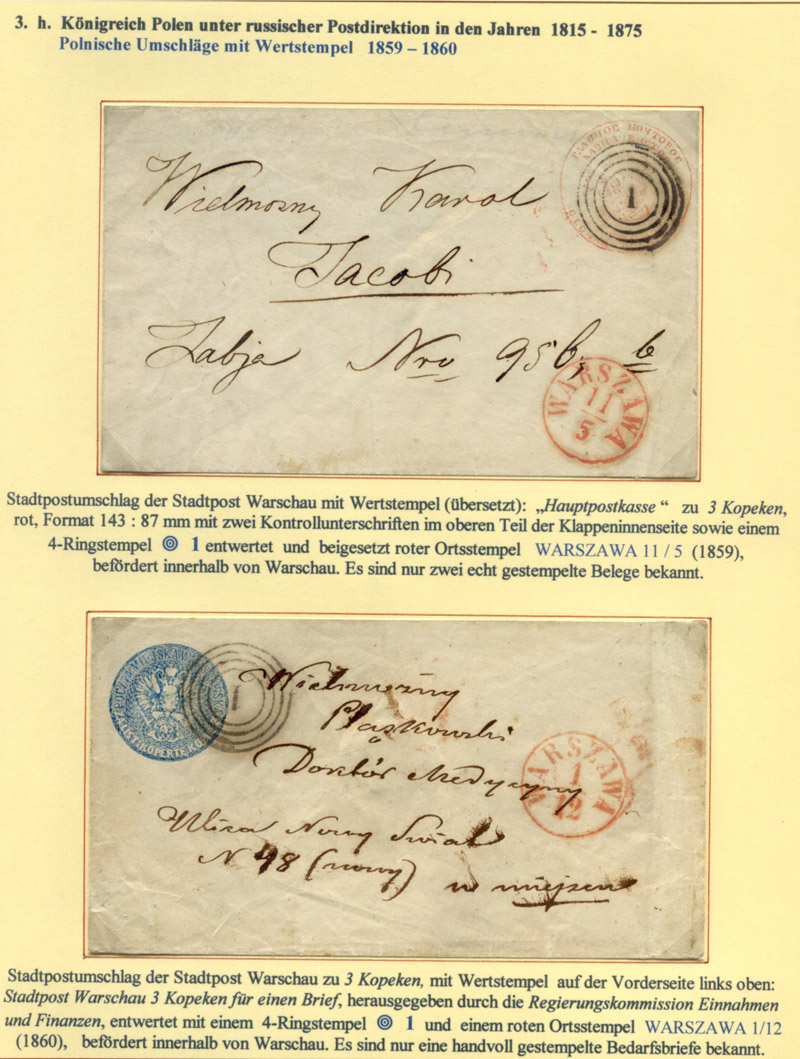 3. h. Königreich Polen unter russischer Postdirektion in den Jahren 1815 - 1875
Polnische Umschläge mit Wertstempel 1859 – 1860
ГЛАВНОЕ ПОЧТОВОЕ
1
Wielmożny Karol
Jacobi
Żabja Nro 956, b
WARSZAWA
11
5
Stadtpostumschlag der Stadtpost Warschau mit Wertstempel (übersetzt): „Hauptpostkasse “ zu 3 Kopeken,
rot, Format 143 : 87 mm mit zwei Kontrollunterschriften im oberen Teil der Klappeninnenseite sowie einem
4-Ringstempel 1 entwertet und beigesetzt roter Ortsstempel WARSZAWA 11 / 5 (1859),
befördert innerhalb von Warschau. Es sind nur zwei echt gestempelte Belege bekannt.
POCZTA MIEJSKA
LIST 1 KOPERTE KO
1
Wielmożny
Płaskowski
Doktór Medycyny
WARSZAWA
1
12
Ulica Nowy Świat
N 48 (nowy)
w miejscu
Stadtpostumschlag der Stadtpost Warschau zu 3 Kopeken, mit Wertstempel auf der Vorderseite links oben:
Stadtpost Warschau 3 Kopeken für einen Brief, herausgegeben durch die Regierungskommission Einnahmen
und Finanzen, entwertet mit einem 4-Ringstempel 1 und einem roten Ortsstempel WARSZAWA 1/12
(1860), befördert innerhalb von Warschau. Es sind nur eine handvoll gestempelte Bedarfsbriefe bekannt.